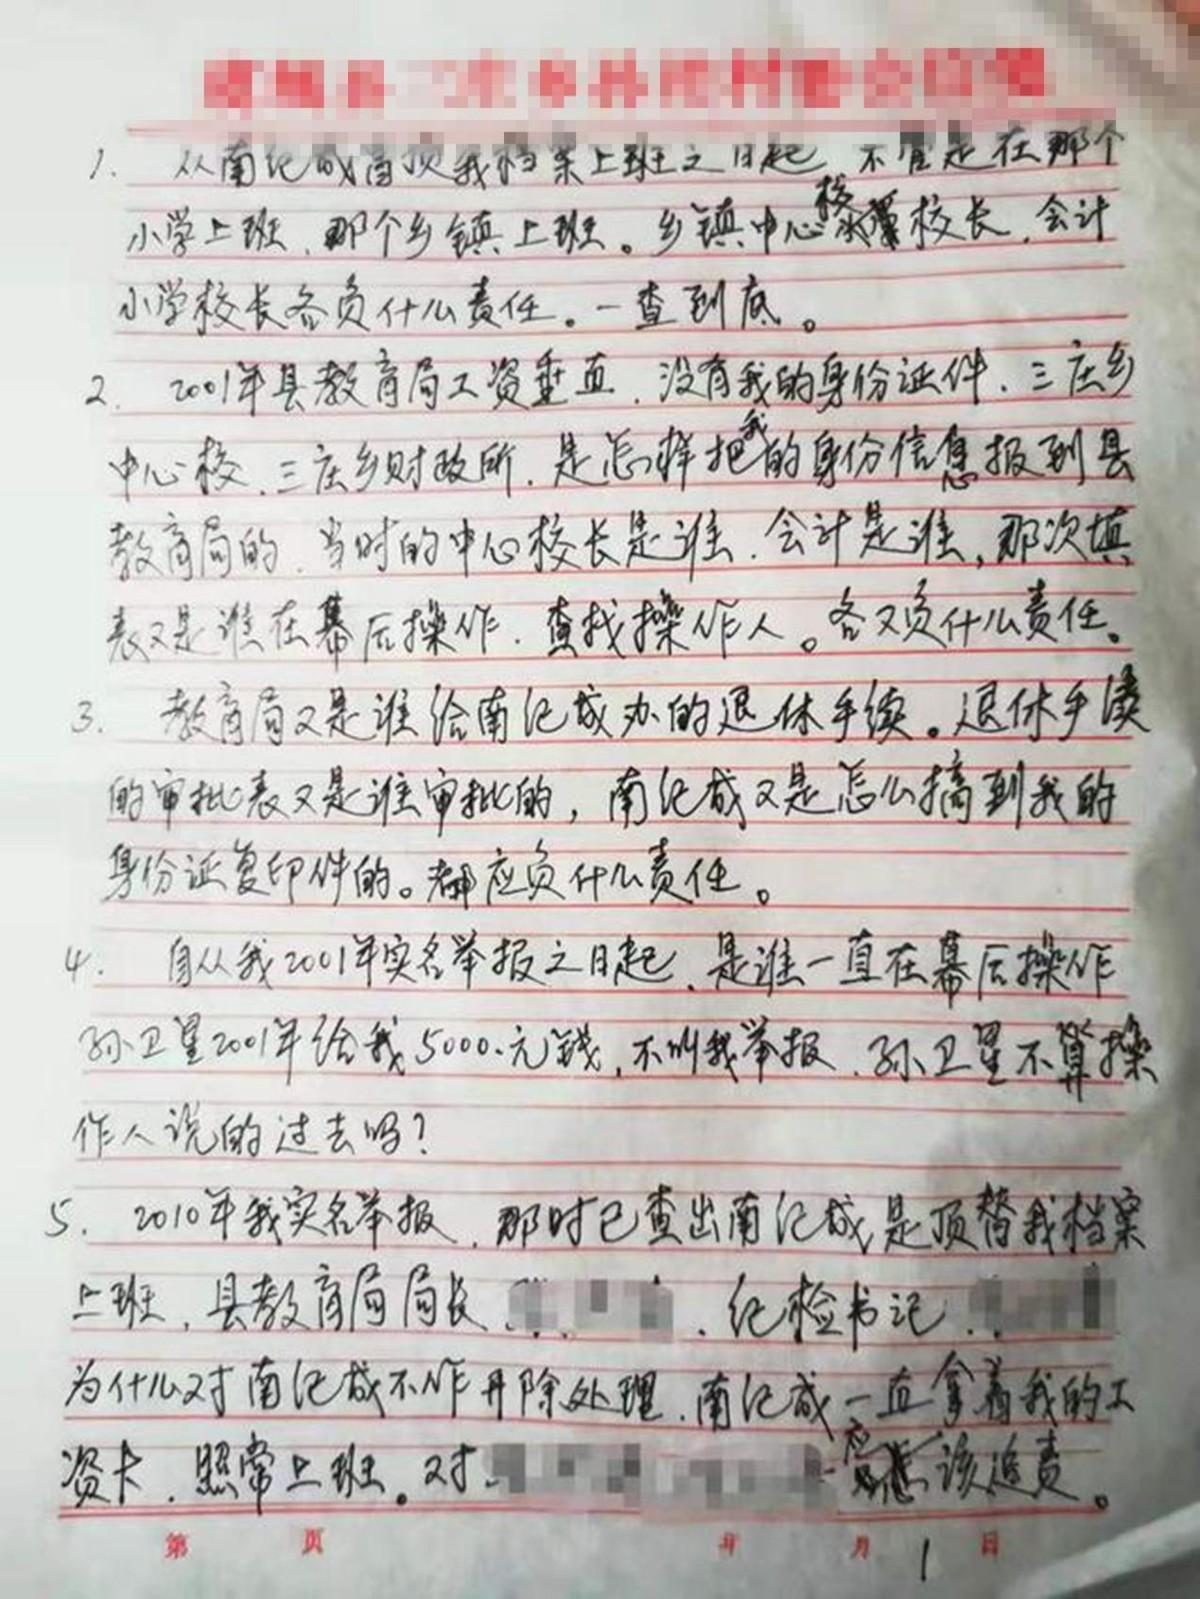 1. 从南纪成冒顶我档案上班之日起 不管是在那个
小学上班，那个乡镇上班。乡镇中心校校长，会计
小学校长各负什么责任。一查到底。
2. 2001年县教育局工资垂直，没有我的身份证件，三庄乡
中心校，三庄乡财政所，是怎样把我的身份信息报到县
教育局的，当时的中心校长是谁，会计是谁，那次填
表又是谁在幕后操作，查找操作人。各又负什么责任。
3. 教育局又是谁给南纪成办的退休手续。退休手续
的审批表又是谁审批的，南纪成又是怎么搞到我的
身份证复印件的。都应负什么责任。
4. 自从我2001年实名举报之日起，是谁一直在幕后操作
孙卫星2001年给我5000.元钱，不叫我举报，孙卫星不算操
作人说的过去吗？
5. 2010年我实名举报，那时已查出南纪成是顶替我档案
上班，县教育局局长 、纪检书记
为什么对南纪成不作开除处理，南纪成一直拿着我的工
资卡，照常上班。对 应该追责。
第 页 年 月 1 日